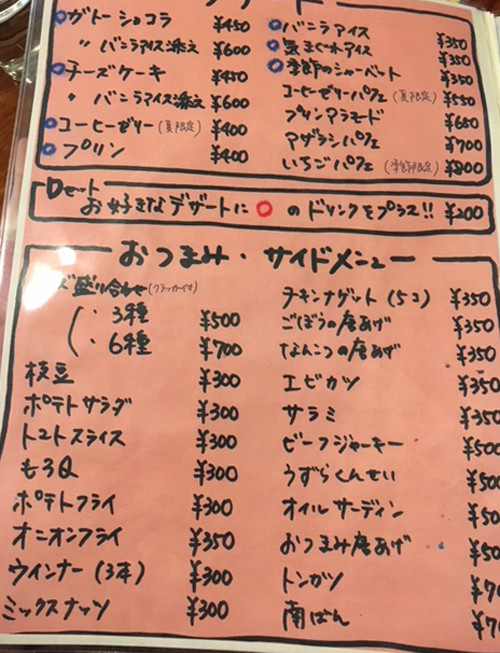 ガトーショコラ ¥450
〃 バニラアイス添え ¥600
チーズケーキ ¥450
〃 バニラアイス添え ¥600
コーヒーゼリー(夏限定) ¥400
プリン ¥400
バニラアイス ¥350
気まぐれアイス ¥350
季節のシャーベット ¥350
コーヒーゼリーパフェ(夏限定) ¥550
プリンアラモード ¥650
アザラシパフェ ¥700
いちごパフェ(季節限定) ¥800
Dセット
お好きなデザートに○のドリンクをプラス!! ¥200
おつまみ・サイドメニュー
ズ盛り合わせ(クラッカー付)
・3種 ¥500
・6種 ¥700
枝豆 ¥300
ポテトサラダ ¥300
トマトスライス ¥300
もろQ ¥300
ポテトフライ ¥300
オニオンフライ ¥350
ウインナー(3本) ¥300
ミックスナッツ ¥300
チキンナゲット(5コ) ¥350
ごぼうの唐あげ ¥350
なんこつの唐あげ ¥350
エビカツ ¥350
サラミ ¥350
ビーフジャーキー ¥500
うずらくんせい ¥500
オイルサーディン ¥50
おつまみ唐あげ ¥50
トンカツ ¥7
南ばん ¥7